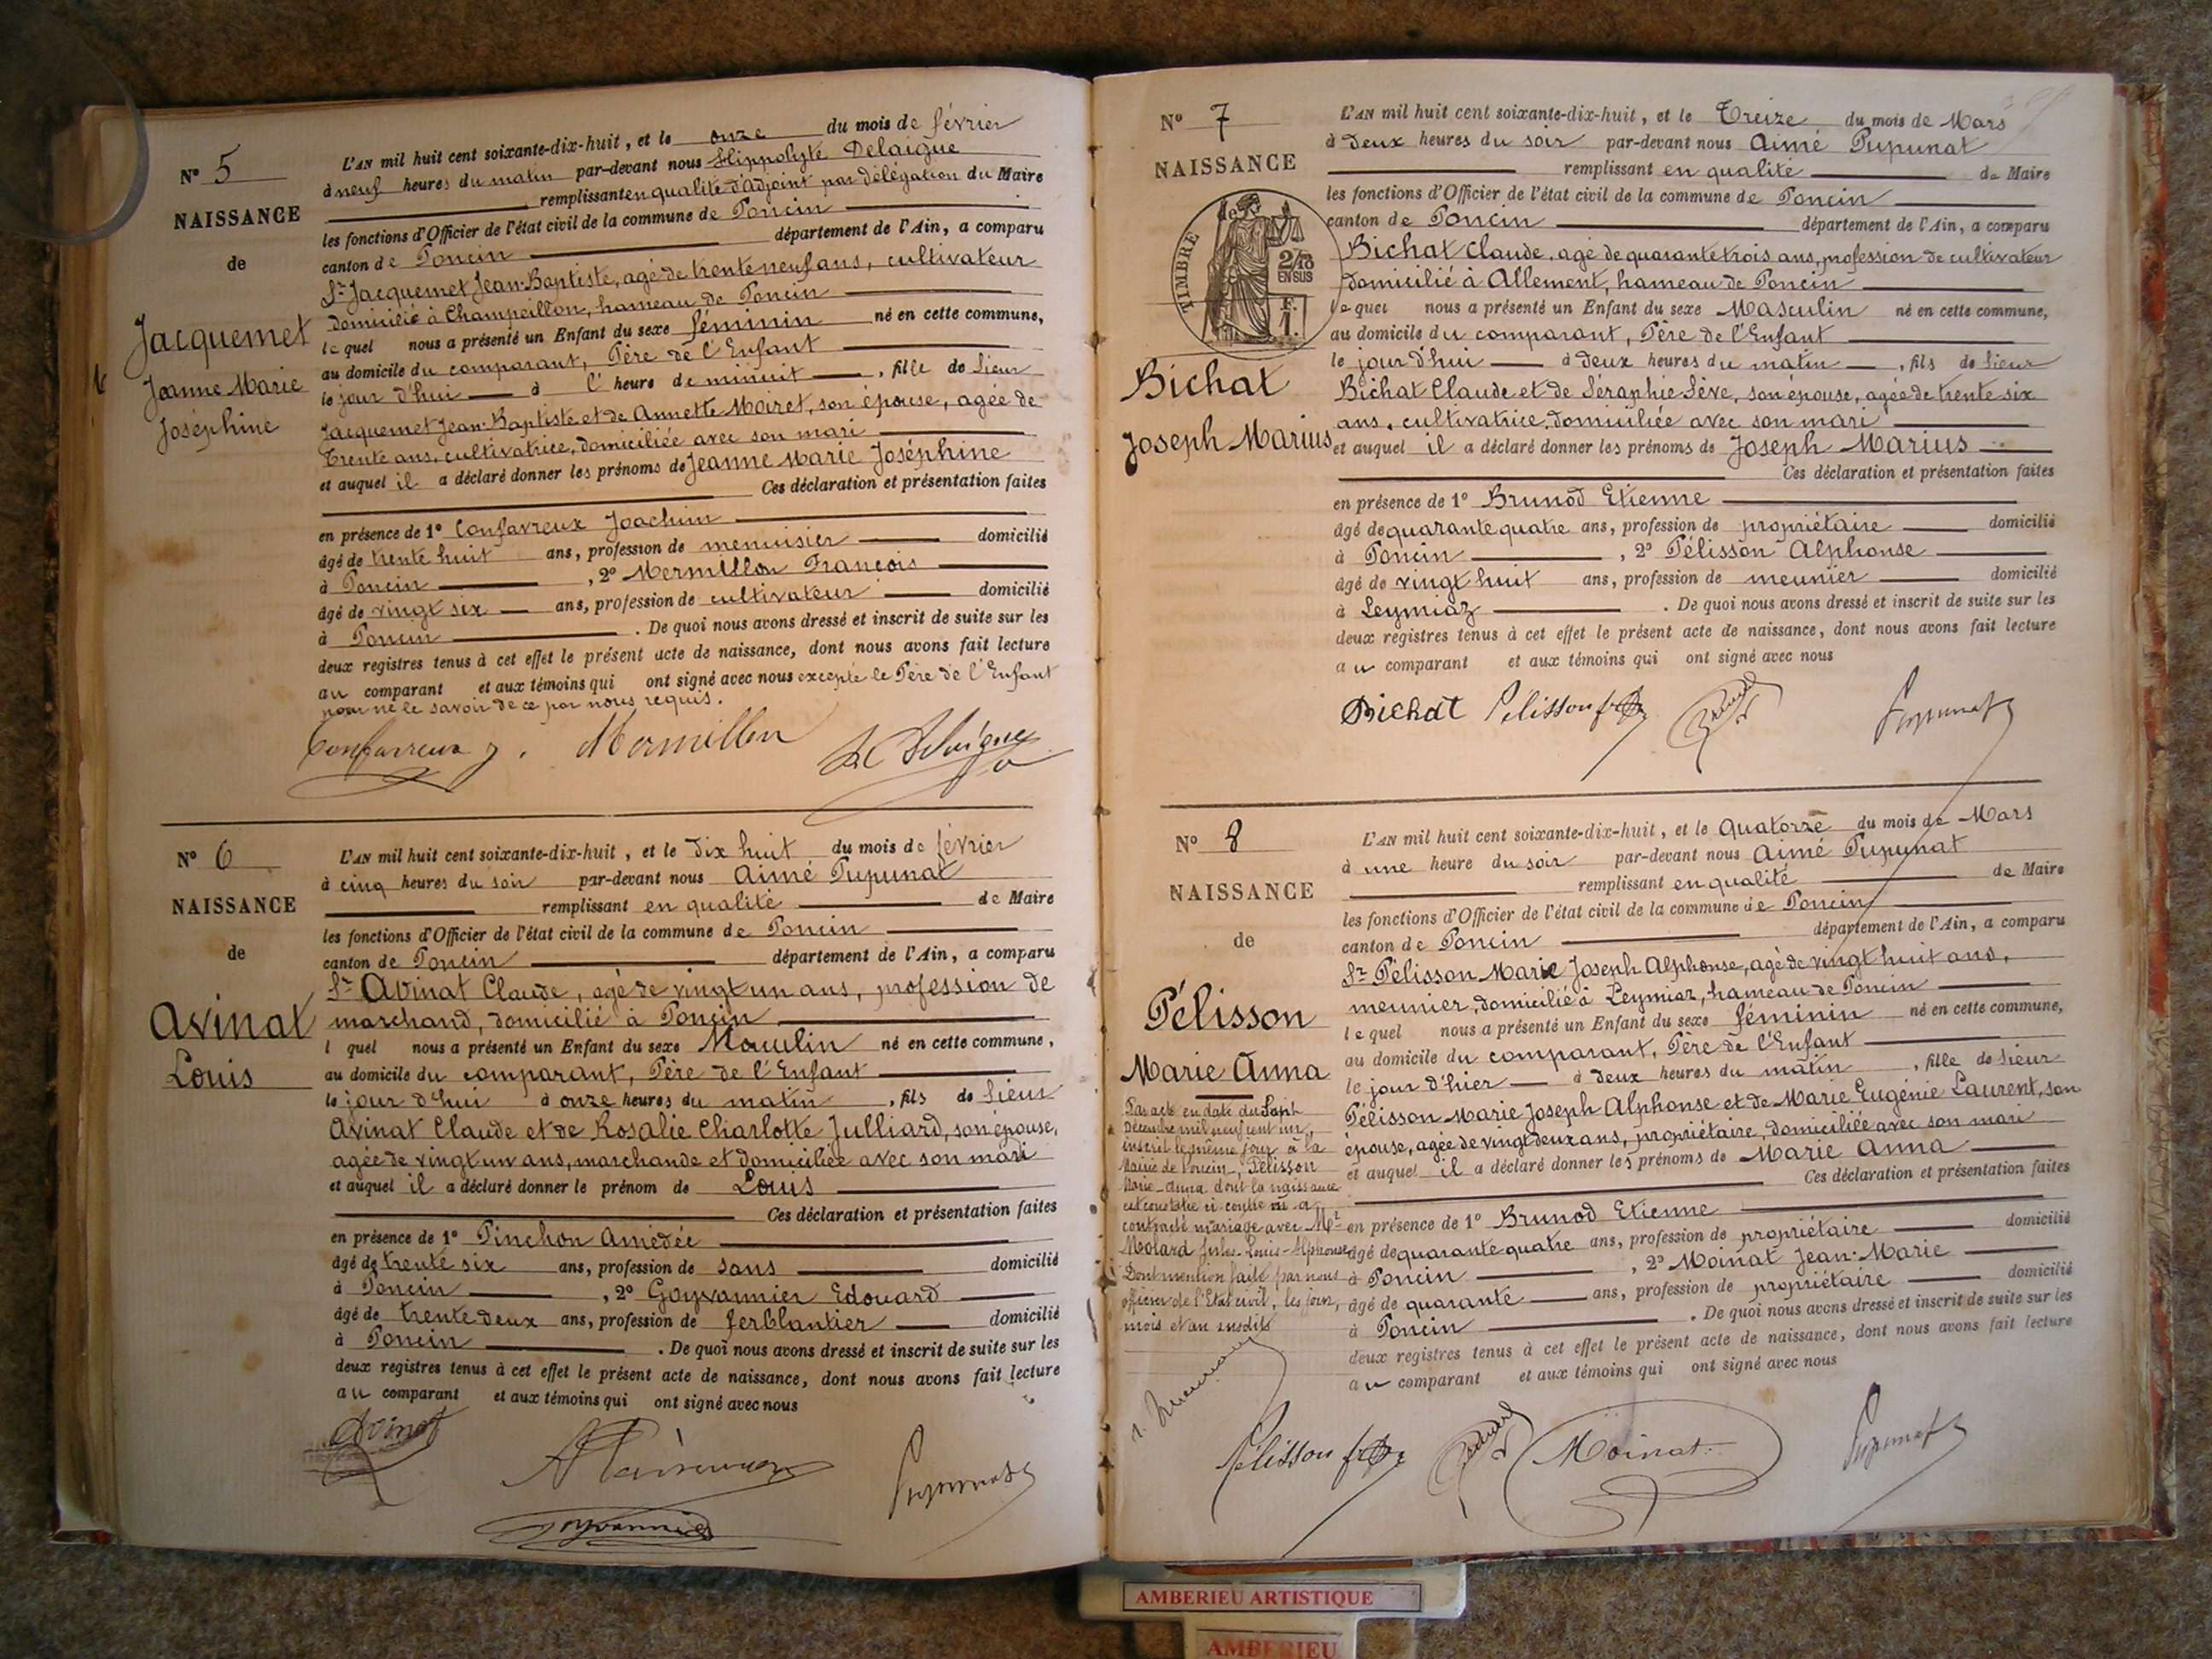 N° 5
NAISSANCE
de
Jacquemet
Jeanne Marie
Joséphine
L'AN mil huit cent soixante-dix-huit, et le onze du mois de février
à neuf heures du matin par-devant nous Hippolyte Delaigue
remplissant en qualité d'adjoint par délégation du Maire
les fonctions d'Officier de l'état civil de la commune de Poncin
canton de Poncin département de l'Ain, a comparu
Sr Jacquemet Jean-Baptiste, agé de trente neuf ans, cultivateur
domicilié à Champeillon, hameau de Poncin
lequel nous a présenté un Enfant du sexe féminin né en cette commune,
au domicile du comparant, Père de l'Enfant
le jour d'hui à l'heure de minuit, fille de Sieur
Jacquemet Jean-Baptiste et de Annette Moiret, son épouse, agée de
trente ans, cultivatrice, domiciliée avec son mari
et auquel il a déclaré donner les prénoms de Jeanne Marie Joséphine
Ces déclaration et présentation faites
en présence de 1° Confavreux Joachim
âgé de trente huit ans, profession de menuisier domicilié
à Poncin, 2° Mermillon François
âgé de vingt six ans, profession de cultivateur domicilié
à Poncin. De quoi nous avons dressé et inscrit de suite sur les
deux registres tenus à cet effet le présent acte de naissance, dont nous avons fait lecture
au comparant et aux témoins qui ont signé avec nous excepté le Père de l'Enfant
pour ne le savoir de ce par nous requis.
Confavreux J. Mermillon H Delaigue
N° 6
NAISSANCE
de
Avinat
Louis
L'AN mil huit cent soixante-dix-huit, et le dix huit du mois de février
à cinq heures du soir par-devant nous Aimé Pupunat
remplissant en qualité de Maire
les fonctions d'Officier de l'état civil de la commune de Poncin
canton de Poncin département de l'Ain, a comparu
Sr Avinat Claude, agé de vingt un ans, profession de
marchand, domicilié à Poncin
l quel nous a présenté un Enfant du sexe Masculin né en cette commune,
au domicile du comparant, Père de l'Enfant
le jour d'hui à onze heures du matin, fils de Sieur
Avinat Claude et de Rosalie Charlotte Julliard, son épouse,
agée de vingt un ans, marchande et domiciliée avec son mari
et auquel il a déclaré donner le prénom de Louis
Ces déclaration et présentation faites
en présence de 1° Pinchon Amédée
âgé de trente six ans, profession de sans domicilié
à Poncin, 2° Goyvannier Edouard
âgé de trente deux ans, profession de ferblantier domicilié
à Poncin. De quoi nous avons dressé et inscrit de suite sur les
deux registres tenus à cet effet le présent acte de naissance, dont nous avons fait lecture
au comparant et aux témoins qui ont signé avec nous
Avinat Pupunat
Goyvannier
N° 7
NAISSANCE
TIMBRE
2/10
EN SUS
F.
1.
Bichat
Joseph Marius
L'AN mil huit cent soixante-dix-huit, et le Treize du mois de Mars
à deux heures du soir par-devant nous Aimé Pupunat
remplissant en qualité de Maire
les fonctions d'Officier de l'état civil de la commune de Poncin
canton de Poncin département de l'Ain, a comparu
Bichat Claude, agé de quarante trois ans, profession de cultivateur
domicilié à Allement, hameau de Poncin
lequel nous a présenté un Enfant du sexe Masculin né en cette commune,
au domicile du comparant, Père de l'Enfant
le jour d'hui à deux heures du matin, fils de Sieur
Bichat Claude et de Séraphie Sève, son épouse, agée de trente six
ans, cultivatrice, domiciliée avec son mari
et auquel il a déclaré donner les prénoms de Joseph Marius
Ces déclaration et présentation faites
en présence de 1° Brunod Etienne
âgé de quarante quatre ans, profession de propriétaire domicilié
à Poncin, 2° Pélisson Alphonse
âgé de vingt huit ans, profession de meunier domicilié
à Leymiaz. De quoi nous avons dressé et inscrit de suite sur les
deux registres tenus à cet effet le présent acte de naissance, dont nous avons fait lecture
au comparant et aux témoins qui ont signé avec nous
Bichat Pelisson Brunod Pupunat
N° 8
NAISSANCE
de
Pélisson
Marie Anna
Par acte en date du Sept
Décembre mil neuf cent un,
inscrit le même jour à la
Mairie de Poncin, Pélisson
Marie-Anna dont la naissance
est constatée ci-contre a
contracté mariage avec Mr
Molard Jules-Louis-Alphonse
Dont mention faite par nous
officier de l'Etat civil, les jour,
mois et an susdits
L'AN mil huit cent soixante-dix-huit, et le Quatorze du mois de Mars
à une heure du soir par-devant nous Aimé Pupunat
remplissant en qualité de Maire
les fonctions d'Officier de l'état civil de la commune de Poncin
canton de Poncin département de l'Ain, a comparu
Sr Pélisson Marie Joseph Alphonse, agé de vingt huit ans,
meunier, domicilié à Leymiaz, hameau de Poncin
lequel nous a présenté un Enfant du sexe féminin né en cette commune,
au domicile du comparant, Père de l'Enfant
le jour d'hier à deux heures du matin, fille de Sieur
Pélisson Marie Joseph Alphonse et de Marie Eugénie Laurent, son
épouse, agée de vingt deux ans, propriétaire, domiciliée avec son mari
et auquel il a déclaré donner les prénoms de Marie Anna
Ces déclaration et présentation faites
en présence de 1° Brunod Etienne
âgé de quarante quatre ans, profession de propriétaire domicilié
à Poncin, 2° Moinat Jean-Marie
âgé de quarante ans, profession de propriétaire domicilié
à Poncin. De quoi nous avons dressé et inscrit de suite sur les
deux registres tenus à cet effet le présent acte de naissance, dont nous avons fait lecture
au comparant et aux témoins qui ont signé avec nous
Pélisson Brunod Moinat Pupunat
AMBERIEU ARTISTIQUE
AMBERIEU